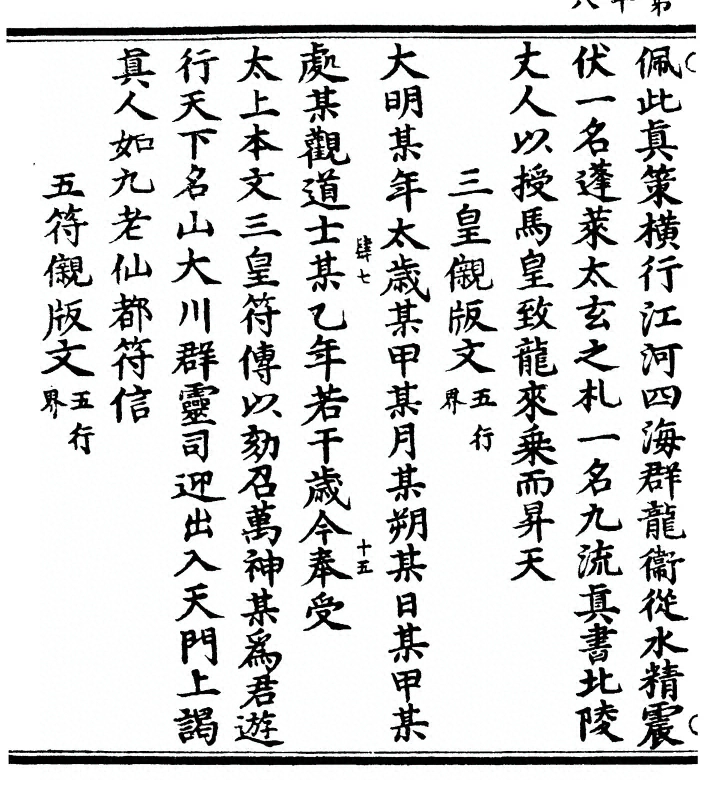 第十八
佩此眞策橫行江河四海群龍衞從水精震
伏一名蓬萊太玄之札一名九流眞書北陵
丈人以授馬皇致龍來乗而昇天
三皇儭版文五行界
大明某年太歲某甲某月某朔某日某甲某
肆七
十五
處某觀道士某乙年若干歲今奉受
太上本文三皇符傳以劾召萬神某爲君遊
行天下名山大川群靈司迎出入天門上謁
眞人如九老仙都符信
五符儭版文五行界